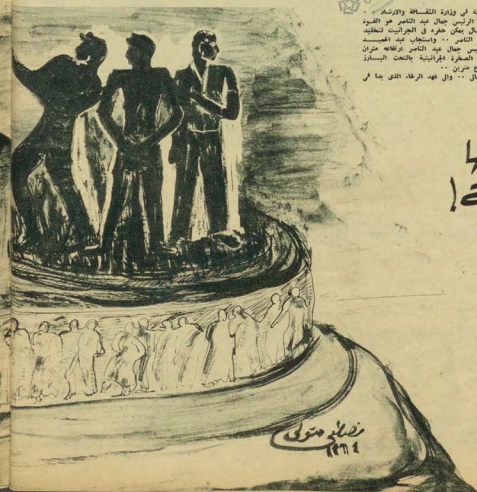 ة فى وزارة الثقافة والارشاد ٠٠
الرئيس جمال عبد الناصر هو القوة
ال يمكن حفره فى الجرانيت لتخليد
الناصر ٠٠ واستجاب عبد الحميد
يس جمال عبد الناصر ارتفاعه متران
الصخرة الجرانيتية بالنحت البارز
ع مترين ٠٠
ال ٠٠ والى عهد الرخاء الذى بدأ فى
مصطفى متولى